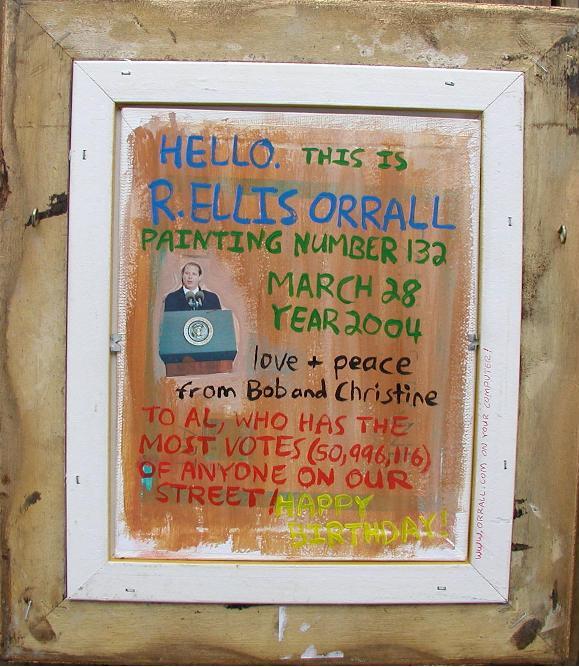 HELLO. THIS IS
R. ELLIS ORRALL
PAINTING NUMBER 132
MARCH 28
YEAR 2004
love + peace
from Bob and Christine
TO AL, WHO HAS THE
MOST VOTES (50,996,116)
OF ANYONE ON OUR
STREET! HAPPY
BIRTHDAY!
WWW.ORRALL.COM ON YOUR COMPUTER!